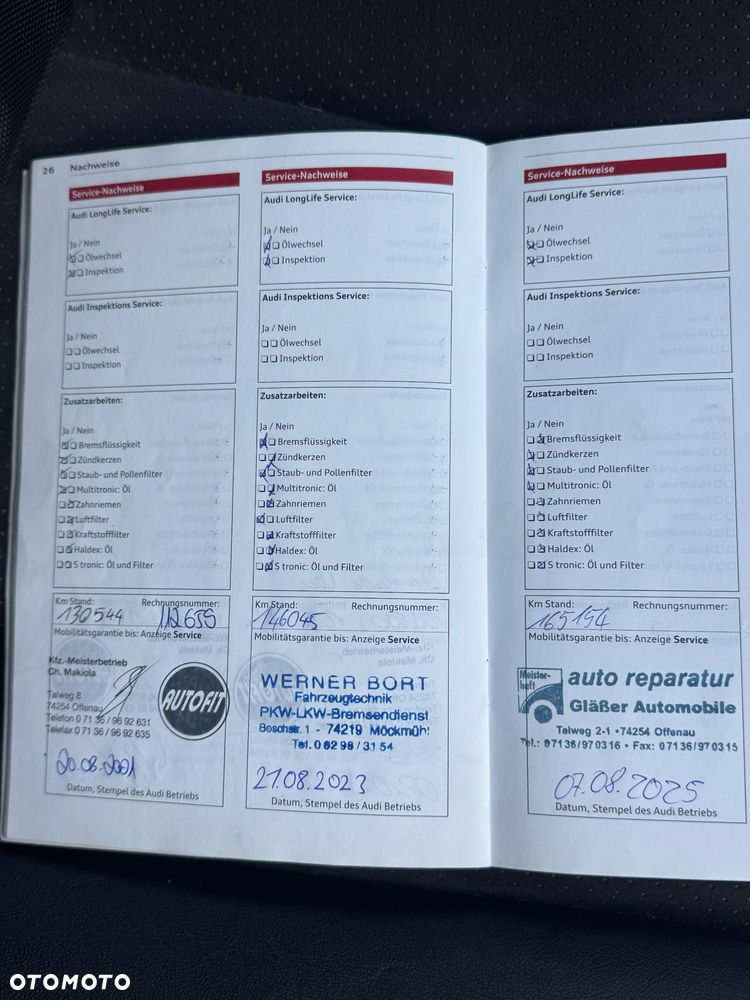 26 Nachweise
Service-Nachweise
Audi LongLife Service:
Ja / Nein
Ölwechsel
Inspektion
Audi Inspektions Service:
Ja / Nein
Ölwechsel
Inspektion
Zusatzarbeiten:
Ja / Nein
Bremsflüssigkeit
Zündkerzen
Staub- und Pollenfilter
Multitronic: Öl
Zahnriemen
Luftfilter
Kraftstofffilter
Haldex: Öl
S tronic: Öl und Filter
Km Stand: Rechnungsnummer:
130544 112655
Mobilitätsgarantie bis: Anzeige Service
Kfz.-Meisterbetrieb
Ch. Makiola
Talweg 8
74254 Offenau
Telefon 0 71 36 / 96 92 631
Telefax 0 71 36 / 96 92 635
AUTOFIT
Datum, Stempel des Audi Betriebs
Service-Nachweise
Audi LongLife Service:
Ja / Nein
Ölwechsel
Inspektion
Audi Inspektions Service:
Ja / Nein
Ölwechsel
Inspektion
Zusatzarbeiten:
Ja / Nein
Bremsflüssigkeit
Zündkerzen
Staub- und Pollenfilter
Multitronic: Öl
Zahnriemen
Luftfilter
Kraftstofffilter
Haldex: Öl
S tronic: Öl und Filter
Km Stand: Rechnungsnummer:
146045
Mobilitätsgarantie bis: Anzeige Service
WERNER BORT
Fahrzeugtechnik
PKW-LKW-Bremsendienst
Boschstr. 1 - 74219 Möckmühl
Tel. 0 62 98 / 31 54
21.08.2023
Datum, Stempel des Audi Betriebs
Service-Nachweise
Audi LongLife Service:
Ja / Nein
Ölwechsel
Inspektion
Audi Inspektions Service:
Ja / Nein
Ölwechsel
Inspektion
Zusatzarbeiten:
Ja / Nein
Bremsflüssigkeit
Zündkerzen
Staub- und Pollenfilter
Multitronic: Öl
Zahnriemen
Luftfilter
Kraftstofffilter
Haldex: Öl
S tronic: Öl und Filter
Km Stand: Rechnungsnummer:
165154
Mobilitätsgarantie bis: Anzeige Service
Meister-
haft
auto reparatur
Gläßer Automobile
Talweg 2-1 • 74254 Offenau
Tel.: 07136/970316 • Fax: 07136/970315
07.08.2025
Datum, Stempel des Audi Betriebs
OTOMOTO